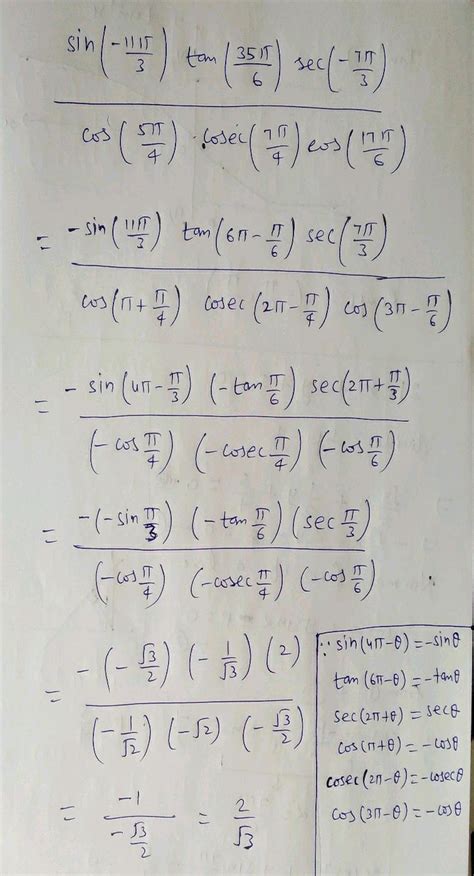 sin(-11π/3) tan(35π/6) sec(-7π/3)
cos(5π/4) · cosec(7π/4) cos(17π/6)
= -sin(11π/3) tan(6π-π/6) sec(7π/3)
cos(π+π/4) cosec(2π-π/4) cos(3π-π/6)
= -sin(4π-π/3) (-tanπ/6) sec(2π+π/3)
(-cosπ/4) (-cosecπ/4) (-cosπ/6)
= -(-sinπ/3) (-tanπ/6) (secπ/3)
(-cosπ/4) (-cosecπ/4) (-cosπ/6)
= -(-√3/2) (-1/√3) (2)
(-1/√2) (-√2) (-√3/2)
= -1/(-√3/2) = 2/√3
∵ sin(4π-θ)=-sinθ
tan(6π-θ)=-tanθ
sec(2π+θ)=secθ
cos(π+θ)=-cosθ
cosec(2π-θ)=-cosecθ
cos(3π-θ)=-cosθ